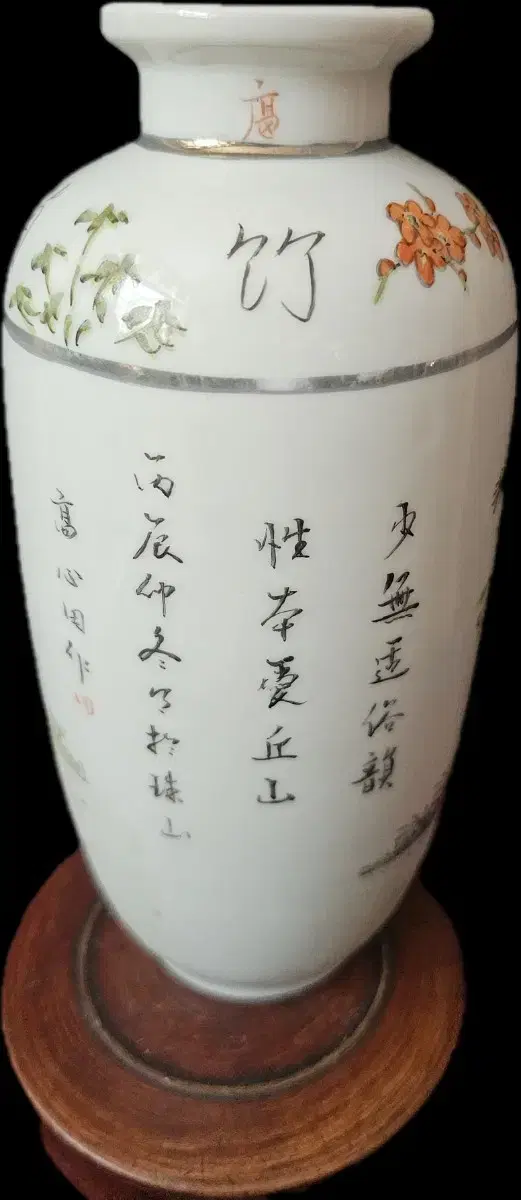 高
竹
少無适俗韻
性本愛丘山
丙辰仲冬写於珠山
高心田作